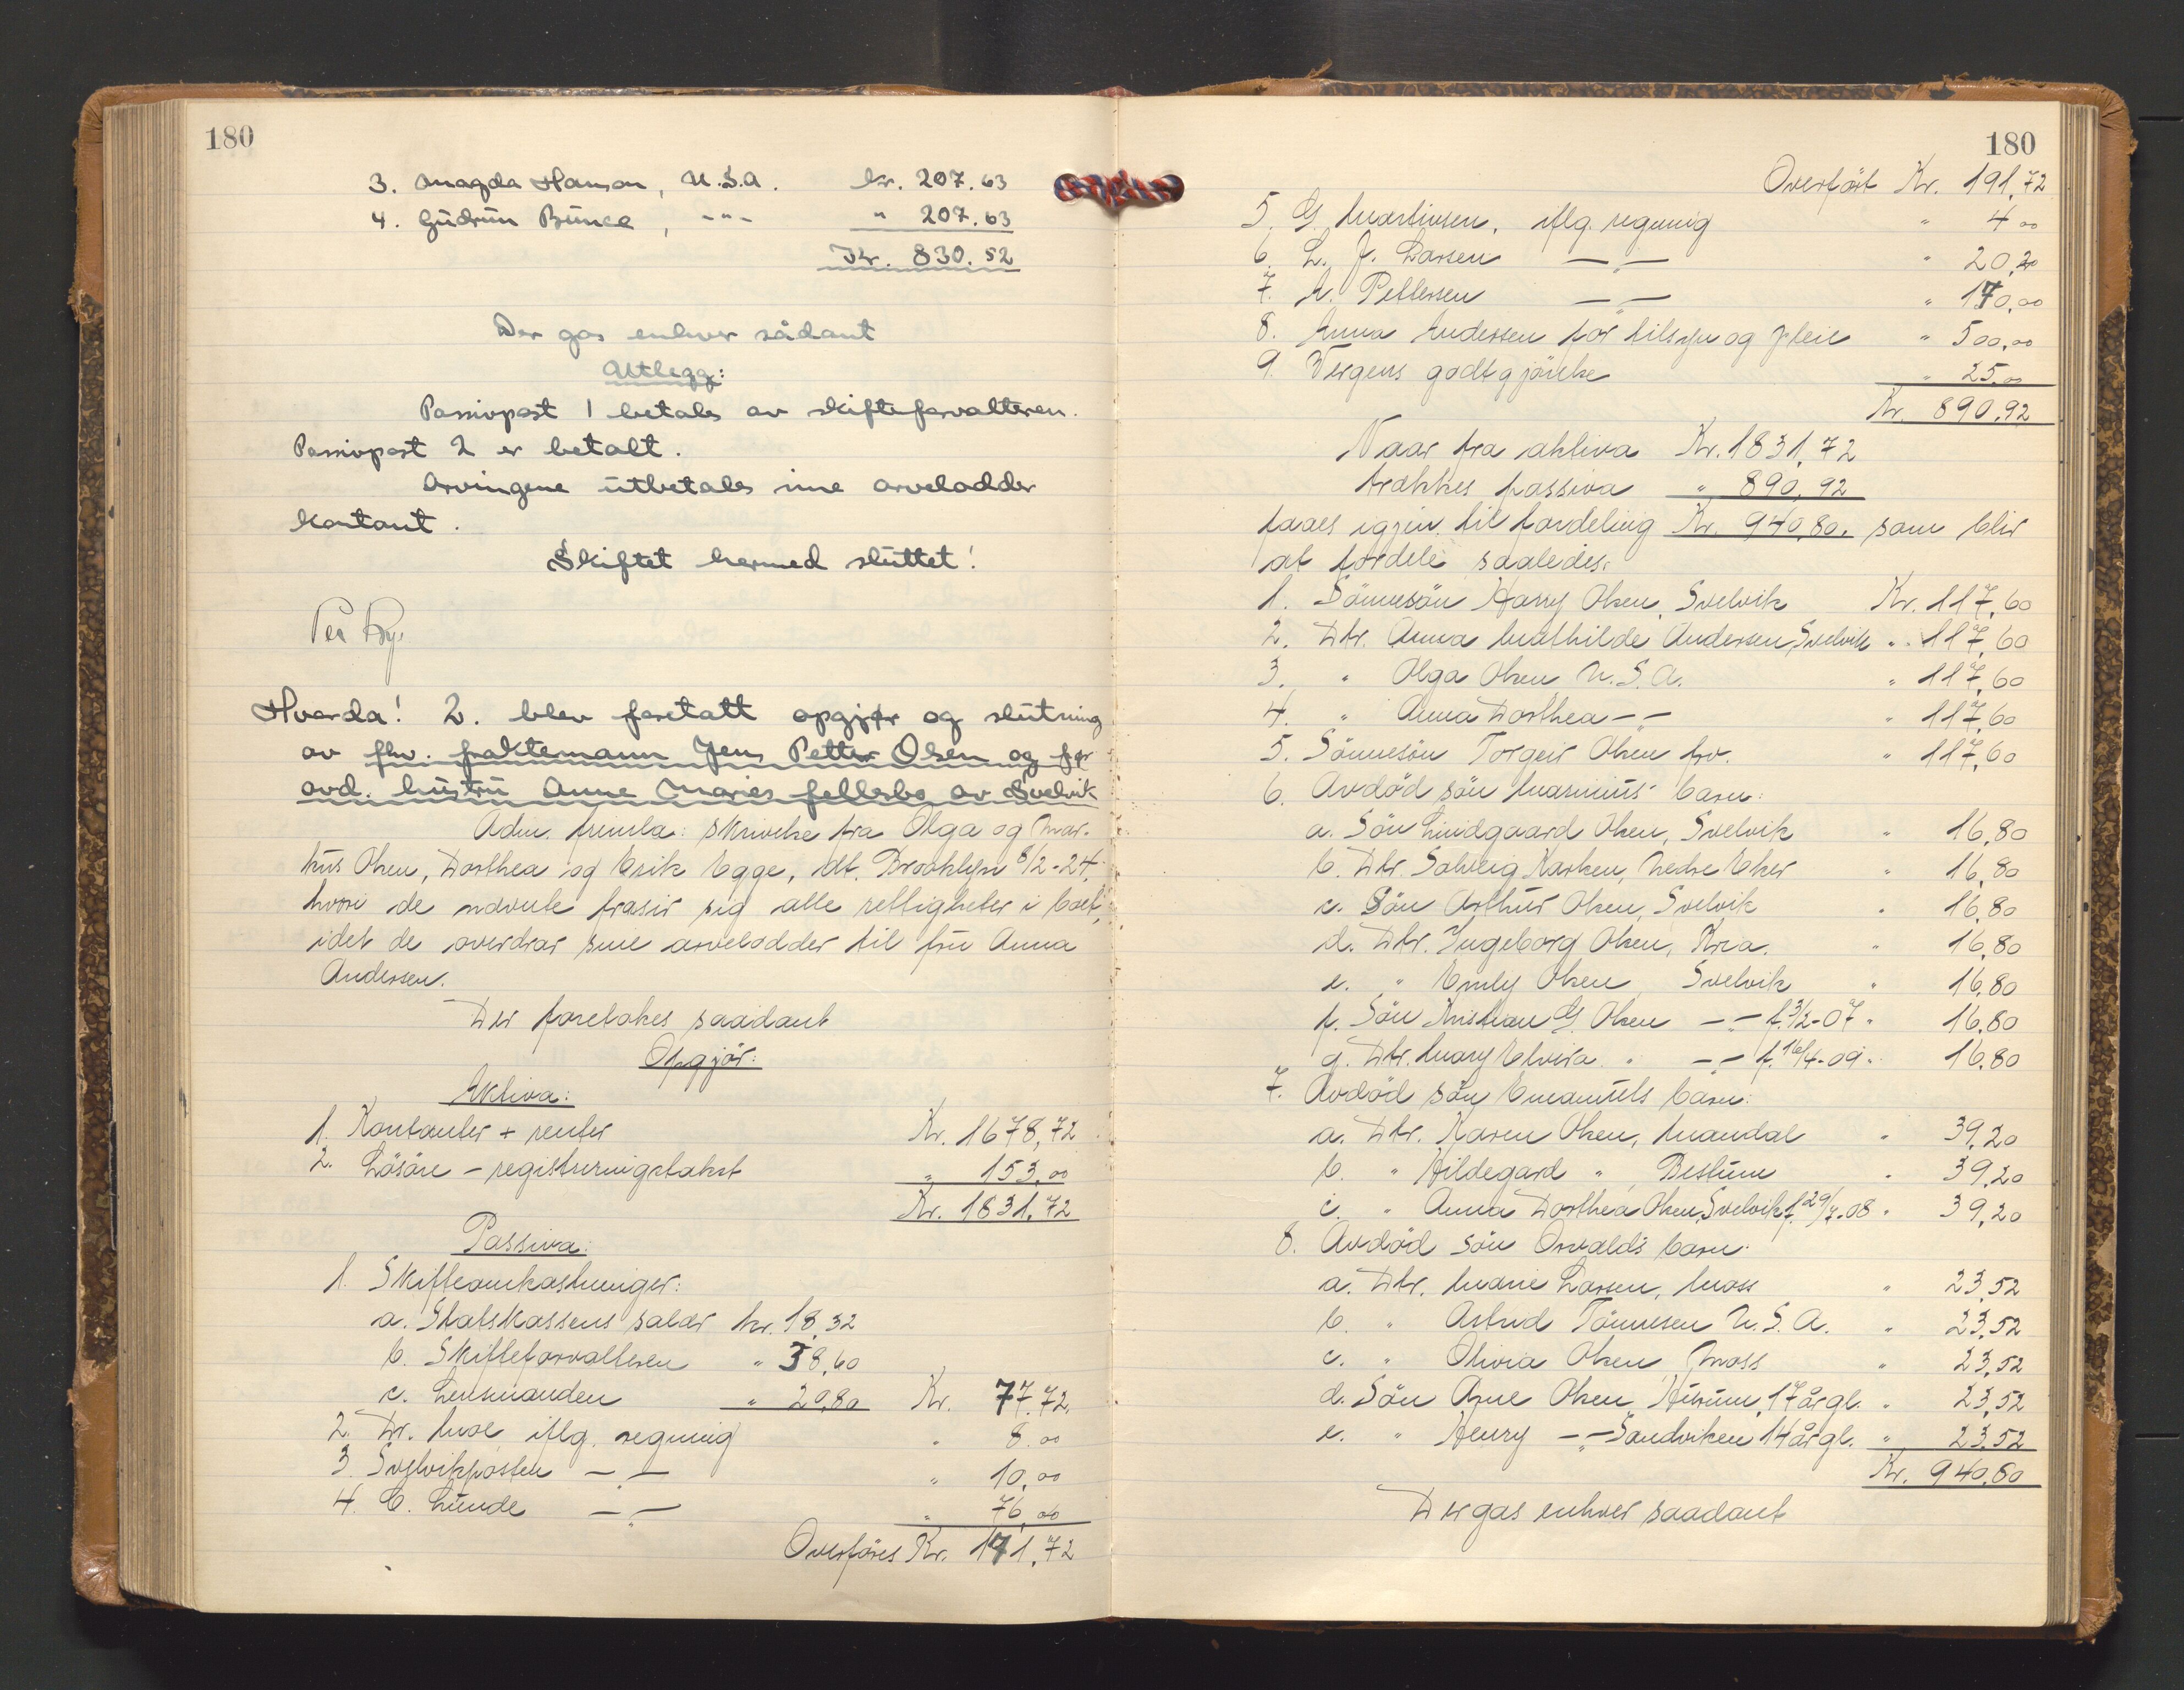 180
3. Magda Hanson, U.S.A. kr. 207.63
4. Gudrun Bunce, -"- " 207.63
Kr. 830.52
Der gas enhver sådant
Utlegg:
Passivpost 1 betales av skifteforvalteren.
Passivpost 2 er betalt.
Arvingene utbetales sine arvelodder
kontant.
Skiftet hermed sluttet!
Per Rye
Hvorda! 2. blev foretatt opgjør og slutning
av fhv. fraktemann Jens Petter Olsen og før
avd. hustru Anne Maries fellesbo av Svelvik
Adm. fremla: skrivelse fra Olga og Mar-
kus Olsen, Dorthea og Erik Egge, dt. Brooklyn 8/2-24,
hvori de nævnte frasir sig alle rettigheter i boet,
idet de overdrar sine arvelodder til fru Anna
Andersen.
Der foretokes saadant
Opgjör:
Aktiva:
1. Kontanter + renter Kr. 1678,72
2. Lösöre - registreringstakst " 153,00
Kr. 1831,72
Passiva:
1. Skifteomkostninger:
a. Statskassens salær kr. 18,32
b. Skifteforvalteren " 38,60
c. Lensmanden " 20,80 Kr. 77,72
2. Dr. Moe iflg. regning " 8.00
3. Svelvikposten -"- " 10,00
4. C. Lunde -"- " 76,00
Overföres Kr. 171,72
180
Overfört Kr. 191,72
5. G. Martinsen, iflg. regning " 4 00
6. L. J. Larsen -"- " 20,20
7. A. Pettersen -"- " 170,00
8. Anna Andersen for tilsyn og pleie " 500,00
9. Vergens godtgjörelse " 25,00
Kr. 890,92
Naar fra aktiva Kr. 1831,72
trækkes passiva " 890,92
faaes igjen til fordeling Kr. 940,80, som blir
at fordele saaledes:
1. Sönnesön Harry Olsen, Svelvik Kr. 117,60
2. Dtr. Anna Mathilde Andersen, Svelvik " 117,60
3. " Olga Olsen U.S.A. " 117,60
4. " Anna Dorthea -"- " 117,60
5. Sönnesön Torgeir Olsen hv. " 117,60
6. Avdöd sön Marinius' barn:
a. Sön Lindgaard Olsen, Svelvik " 16,80
b. Dtr. Solveig Karlsen, Nedre Eker " 16,80
c. Sön Arthur Olsen, Svelvik " 16,80
d. Dtr. Ingeborg Olsen, Kr.a. " 16,80
e. " Emly Olsen, Svelvik " 16,80
f. Sön Kristian G. Olsen -"- f. 3/2-07 " 16,80
g. Dtr. Mary Elvira " -"- f. 16/4-09 " 16,80
7. Avdöd sön Emanuels barn:
a. Dtr. Karen Olsen, Mandal " 39,20
b. " Hildegard ", Bestum " 39,20
c. " Anna Dorthea Olsen, Svelvik f. 29/7-08 " 39,20
8. Avdöd sön Osvalds barn:
a. Dtr. Marie Larsen, Moss " 23,52
b. " Astrid Tönnesen U.S.A. " 23,52
c. " Olivia Olsen, Moss " 23,52
d. Sön Arne Olsen, Hurum, 17 år gl. " 23,52
e. " Henry -"- Sandviken 14 år gl. " 23,52
Kr. 940,80
Der gas enhver saadant